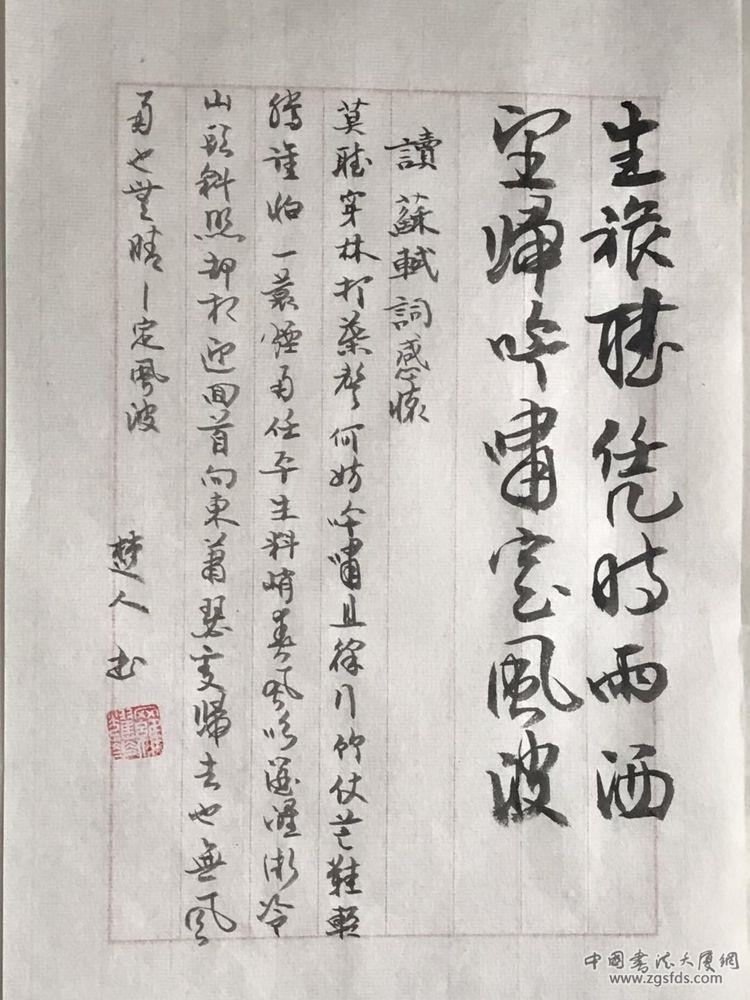 生旅聽凭時雨洒
望歸吟嘯定風波
讀蘇軾詞感懷
莫聽穿林打葉聲何妨吟嘯且徐行竹仗芒鞋輕
勝誰怕一蓑煙雨任平生料峭春風吹酒醒微冷
山頭斜照却相迎回首向來蕭瑟處歸去也無風
雨也無晴—定風波
楚人书
中国书法大厦網
www.zgsfds.com